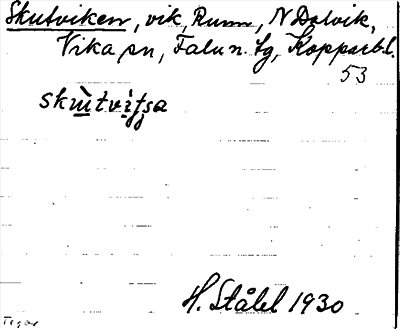 Skutviken, vik, Runn, N Dalvik,
Vika sn, Falu n. tg, Kopparb.l.
53
skùtvìʃʃa
H. Ståhl 1930